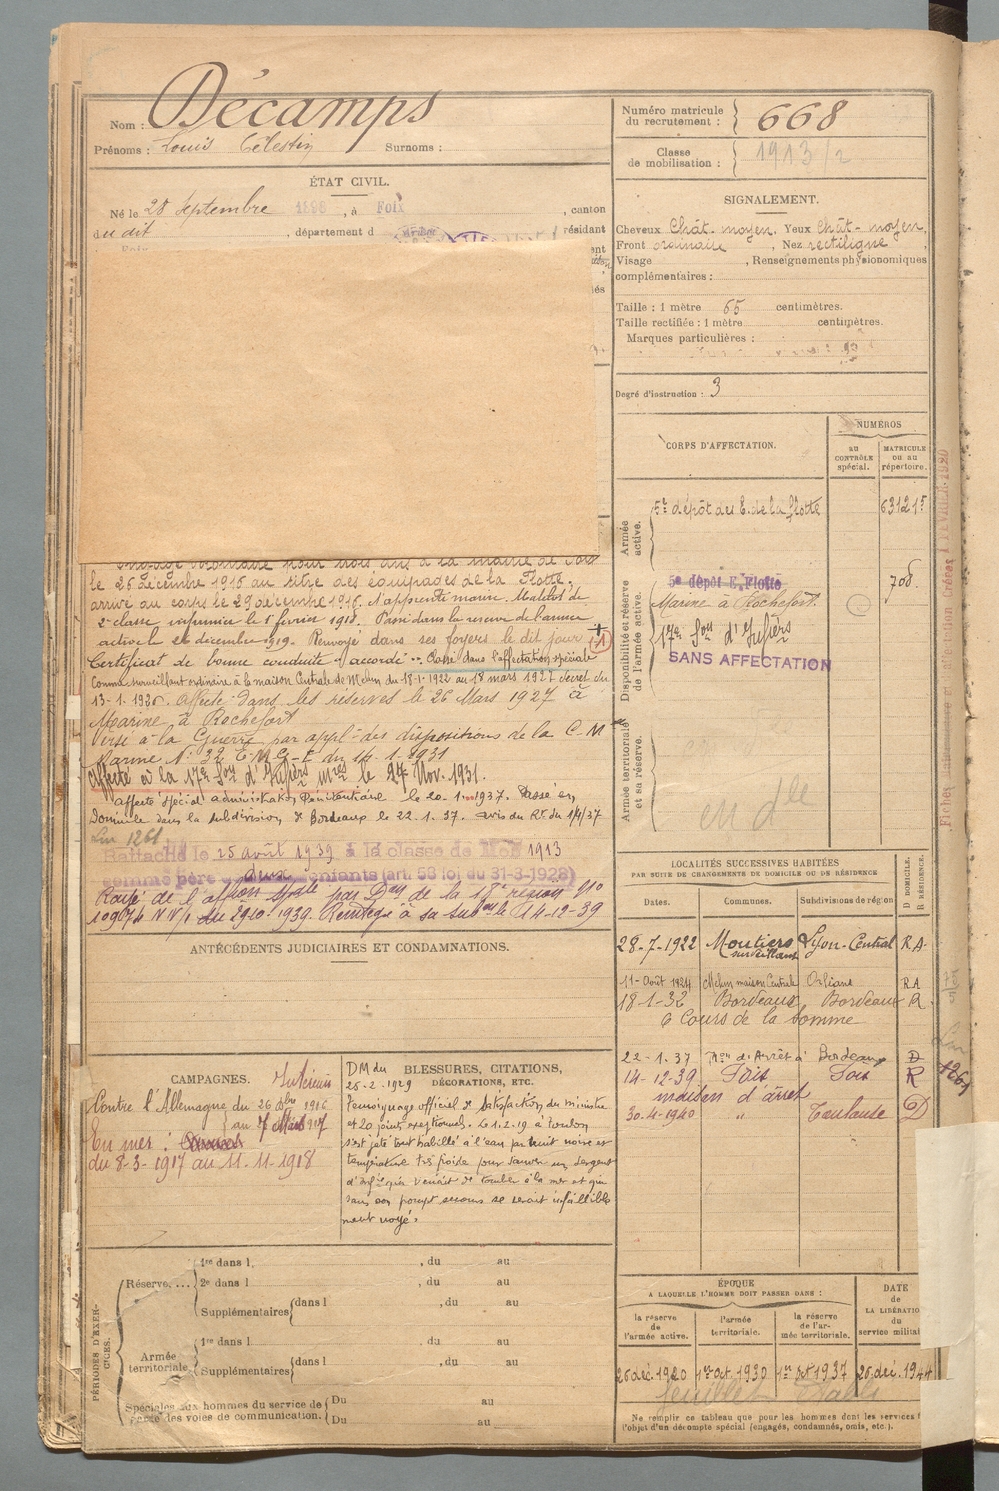 Nom : Décamps
Prénoms : Louis Célestin Surnoms :
ÉTAT CIVIL.
Né le 28 Septembre 1898, à Foix, canton
dudit, département d résidant
Engagé volontaire pour trois ans à la mairie de
le 26 décembre 1916 au titre des équipages de la Flotte.
arrivé au corps le 29 décembre 1916. Apprenti marin. Matelot de
2e classe le 1er février 1918. Passé dans la réserve de l'armée
active le 26 décembre 1919. Renvoyé dans ses foyers le dit jour (1)
Certificat de bonne conduite "accordé". Classé dans l'affectation spéciale
comme surveillant ordinaire à la maison Centrale de Melun du 18-1-1922 au 18 mars 1927 décret du
13-1-1926. Affecté dans les réserves le 26 Mars 1927 à
Marine à Rochefort
Versé à la Guerre par appl. des dispositions de la C.M
Marine N° 32 E.M.G- du 14-1-1931
Affecté à la 17e Son d'Infiers mres le 27 Nov. 1931.
Affecté spécial administration Pénitentiaire le 20-1-1937. Passé en
Domicile dans la subdivision de Bordeaux le 22.1.37. avis du Rt du 1/4/37
1261
Rattaché le 25 août 1939 à la classe de Mob 1913
comme père de deux enfants (art. 58 loi du 31-3-1928)
Rayé de l'affon spale par Don de la 17e région N°
du 29-10-1939. Réintègre à sa subon le 14-12-39
ANTÉCÉDENTS JUDICIAIRES ET CONDAMNATIONS.
CAMPAGNES.
Intérieur
Contre l'Allemagne du 26 Xbre 1916
au 7 Mars 1917
En mer :
du 8-3-1917 au 11-11-1918
BLESSURES, CITATIONS,
DÉCORATIONS, ETC.
DM du
26-2-1929
Témoignage officiel de Satisfaction du ministre
et 20 points exceptionnels. Le 1.2.19 à Toulon
s'est jeté tout habillé à l'eau par nuit noire et
température très froide pour sauver un sergent
d'infie qui venait de tomber à la mer et qui
sans son prompt secours se serait infaillible
ment noyé.
PÉRIODES D'EXERCICES.
Réserve....
1re dans l , du au
2e dans l , du au
Supplémentaires dans l , du au
Armée territoriale.
1re dans l , du au
Supplémentaires dans l , du au
Spéciales aux hommes du service de garde des voies de communication.
Du au
Du au
Numéro matricule
du recrutement : 668
Classe
de mobilisation : 1913/2
SIGNALEMENT.
Cheveux Chât. moyen. Yeux chât-moyen,
Front ordinaire, Nez rectiligne,
Visage , Renseignements physionomiques
complémentaires :
Taille : 1 mètre 65 centimètres.
Taille rectifiée : 1 mètre centimètres.
Marques particulières :
Degré d'instruction : 3
CORPS D'AFFECTATION.
NUMÉROS
AU CONTRÔLE spécial.
MATRICULE OU AU répertoire.
Armée active.
5e dépôt des E. de la flotte 63121 5
Disponibilité et réserve de l'armée active.
5e dépôt E. Flotte
Marine à Rochefort. 708
17e Son d'Infiers
SANS AFFECTATION
Armée territoriale et sa réserve.
en dle
LOCALITÉS SUCCESSIVES HABITÉES
PAR SUITE DE CHANGEMENTS DE DOMICILE OU DE RÉSIDENCE
Dates. Communes. Subdivisions de région D DOMICILE. R RÉSIDENCE.
28-7-1922 Moutiers Lyon-Central R A.
11-Août 1924 Melun maison Centrale Orléans R A
18-1-32 Bordeaux Bordeaux R.
6 Cours de la Somme
22-1-37 Mon d'Arrêt à Bordeaux D
14-12-39 Foix Foix R
maison d'arrêt
30-4-1940 " Toulouse D
ÉPOQUE
A LAQUELLE L'HOMME DOIT PASSER DANS :
la réserve de l'armée active. l'armée territoriale. la réserve de l'armée territoriale.
DATE de LA LIBÉRATION du service militaire
26 déc. 1920 1er oct 1930 1er oct 1937 26 déc. 1944
Ne remplir ce tableau que pour les hommes dont les services f
l'objet d'un décompte spécial (engagés, condamnés, omis, etc.).
1261